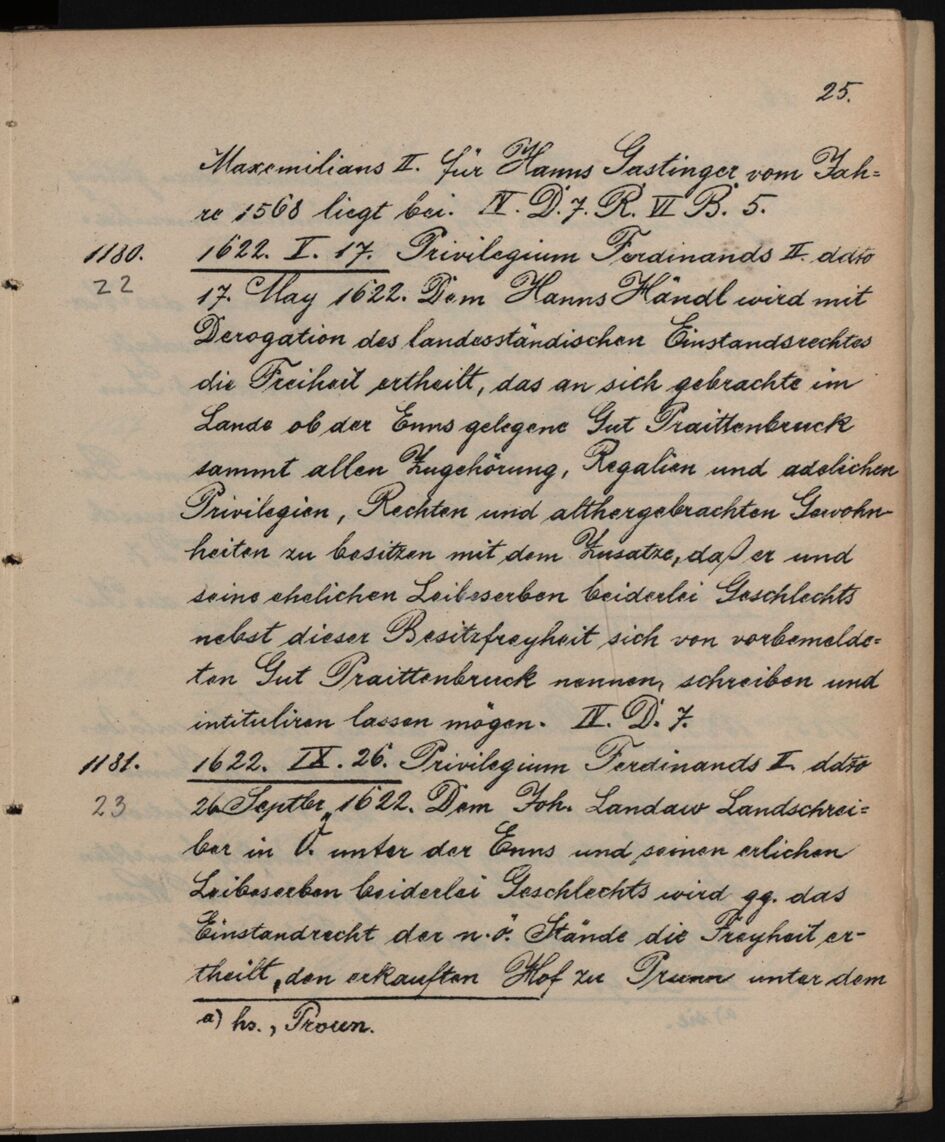 25.
Maxemilians II. für Hanns Gastinger vom Jah=
re 1568 liegt bei. IV. D. 7. R. VI B. 5.
1180. 1622. V. 17. Privilegium Ferdinands II. ddto
22 17. May 1622. Dem Hanns Händl wird mit
Derogation des landesständischen Einstandsrechtes
die Freiheit ertheilt, das an sich gebrachte im
Lande ob der Enns gelegene Gut Praittenbruck
sammt allen Zugehörung, Regalien und adelichen
Privilegien, Rechten und althergebrachten Gewohn-
heiten zu besitzen mit dem Zusatze, daß er und
seine ehelichen Leibeserben beiderlei Geschlechts
nebst dieser Besitzfreyheit sich von vorbemelde=
ten Gut Praittenbruck nennen, schreiben und
intituliren lassen mögen. IV. D. 7.
1181. 1622. IX. 26. Privilegium Ferdinands II. ddto
23 26 Septbr 1622. Dem Joh. Landaw Landschrei=
ber in Ö. unter der Enns und seinen erlichen
Leibeserben beiderlei Geschlechts wird gg. das
Einstandrecht der n.ö. Stände die Freyheit er-
theilt, den erkauften Hof zu Prunn unter dem
a) hs., Proun.